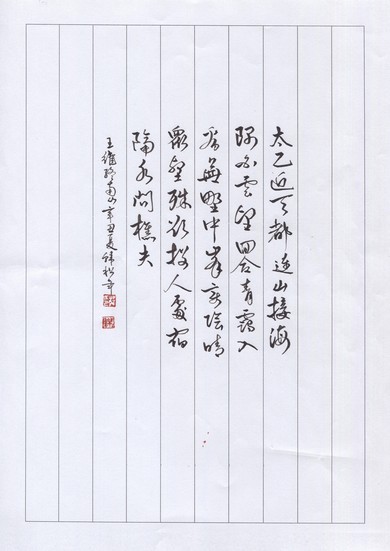 太乙近天都連山接海
隅白雲望回合青靄入
看無野中峯变陰晴
眾壑殊欲投人處宿
隔水問樵夫
王維終南山辛丑夏